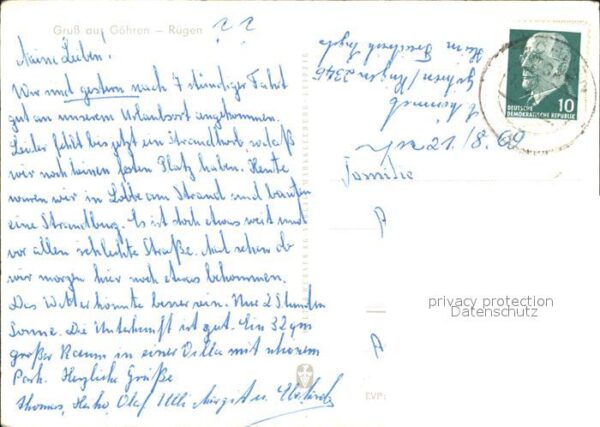 Gruß aus Göhren – Rügen
Meine Lieben!
Wir sind gestern nach 7 stündiger Fahrt
gut an unserem Urlaubsort angekommen.
Leider fehlt bis jetzt ein Strandkorb, sodaß
wir noch keinen festen Platz haben. Heute
waren wir in Lobbe am Strand und bauten
eine Strandburg. Es ist doch etwas weit und
vor allen schlechte Straße. Mal sehen ob
wir morgen hier noch etwas bekommen.
Das Wetter könnte besser sein. Nur 2 Stunden
Sonne. Die Unterkunft ist gut. Ein 32 qm
großer Raum in einer Villa mit schönem
Park. Herzliche Grüße
Thomas, Heiko, Olaf Ulli Margit u.
Göhren/Rügen 2345
21/8. 69
Familie
DEUTSCHE
DEMOKRATISCHE REPUBLIK
10
privacy protection
Datenschutz
EVP: